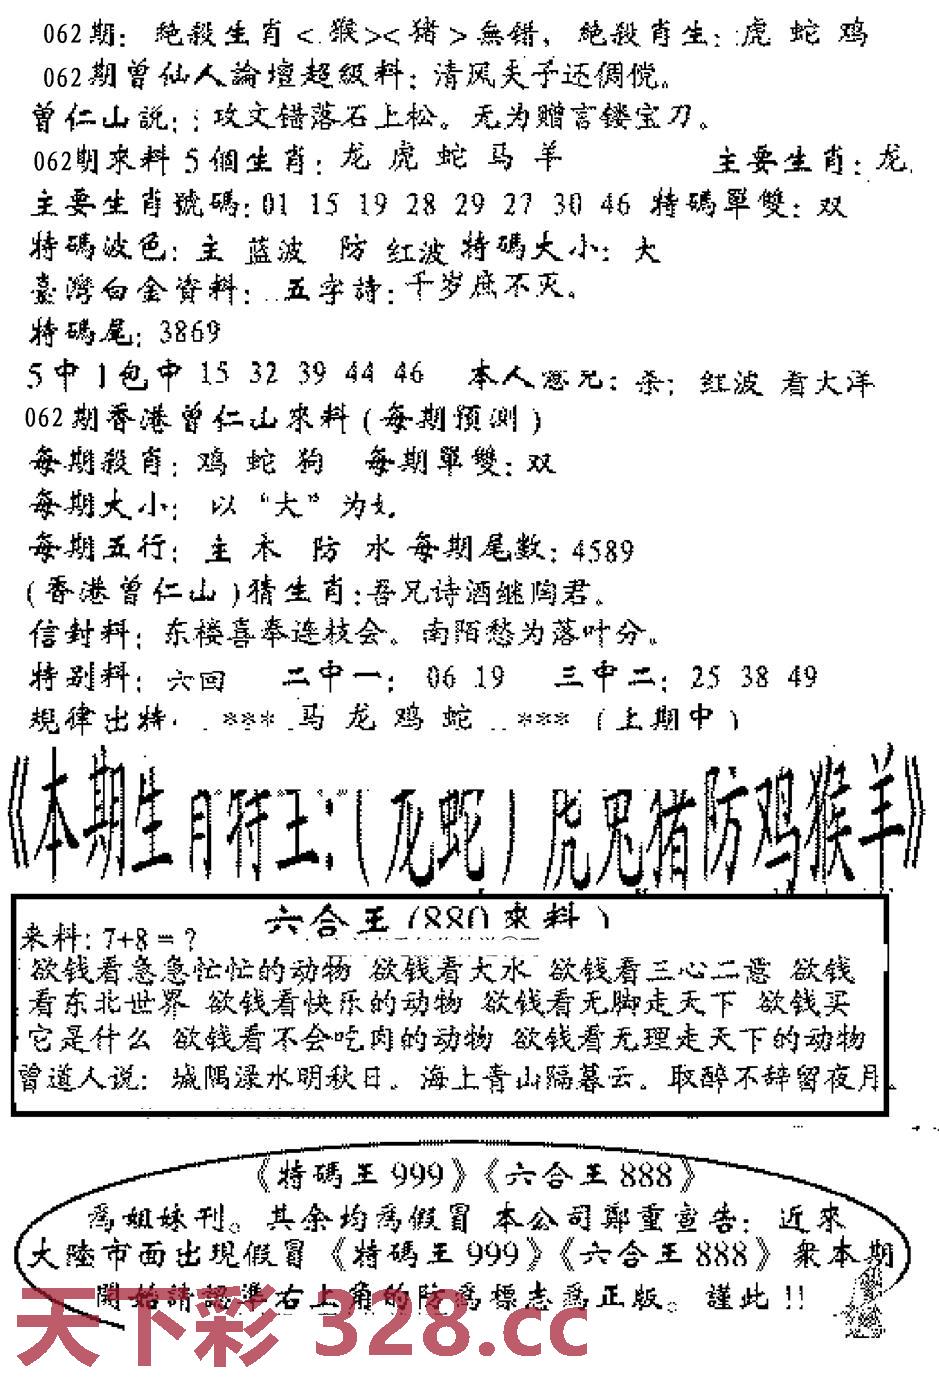 062期：绝殺生肖<猴><猪>無错，绝殺肖生：虎 蛇 鸡
062期曾仙人論壇超級料：清风夫子还倜傥。
曾仁山説：攻文错落石上松。无为赠言镂宝刀。
062期來料 5個生肖：龙 虎 蛇 马 羊 主要生肖：龙
主要生肖號碼：01 15 19 28 29 27 30 46 特碼單雙：双
特碼波色：主 蓝波 防 红波 特碼大小：大
臺灣白金資料：五字詩：千岁庶不灭。
特碼尾：3869
5中1包中 15 32 39 44 46 本人 杀；红波 看大洋
062期香港曾仁山來料（每期預測）
每期殺肖：鸡 蛇 狗 每期單雙：双
每期大小：以“大”为
每期五行：主 木 防 水 每期尾数：4589
（香港曾仁山）猜生肖：吾兄诗酒继陶君。
信封料：东楼喜奉连枝会。南陌愁为落叶分。
特别料：六回 二中一：06 19 三中二：25 38 49
規律出特 *** 马 龙 鸡 蛇 ***（上期中）
《本期生肖特王：（龙蛇）虎兔猪防鸡猴羊》
六合王（880來料）
来料：7+8=？
欲钱看急急忙忙的动物 欲钱看大水 欲钱看三心二意 欲钱
看东北世界 欲钱看快乐的动物 欲钱看无脚走天下 欲钱买
它是什么 欲钱看不会吃肉的动物 欲钱看无理走天下的动物
曾道人说：城隅渌水明秋日。海上青山隔暮云。取醉不辞留夜月
《特碼王999》《六合王888》
爲姐妹刊。其余均爲假冒 本公司鄭重宣告：近來
大陸市面出現假冒《特碼王999》《六合王888》衆本期
開始請認準右上角的防爲標志爲正版。謹此!!
天下彩 328.cc